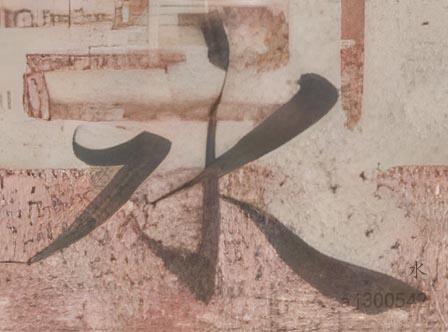 水
水
aj300542